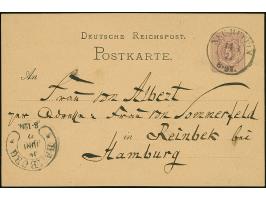 DEUTSCHE REICHSPOST.
POSTKARTE.
An
Frau von Albert
Adresse Frau von Sommerfeld
in Reinbek bei
Hamburg